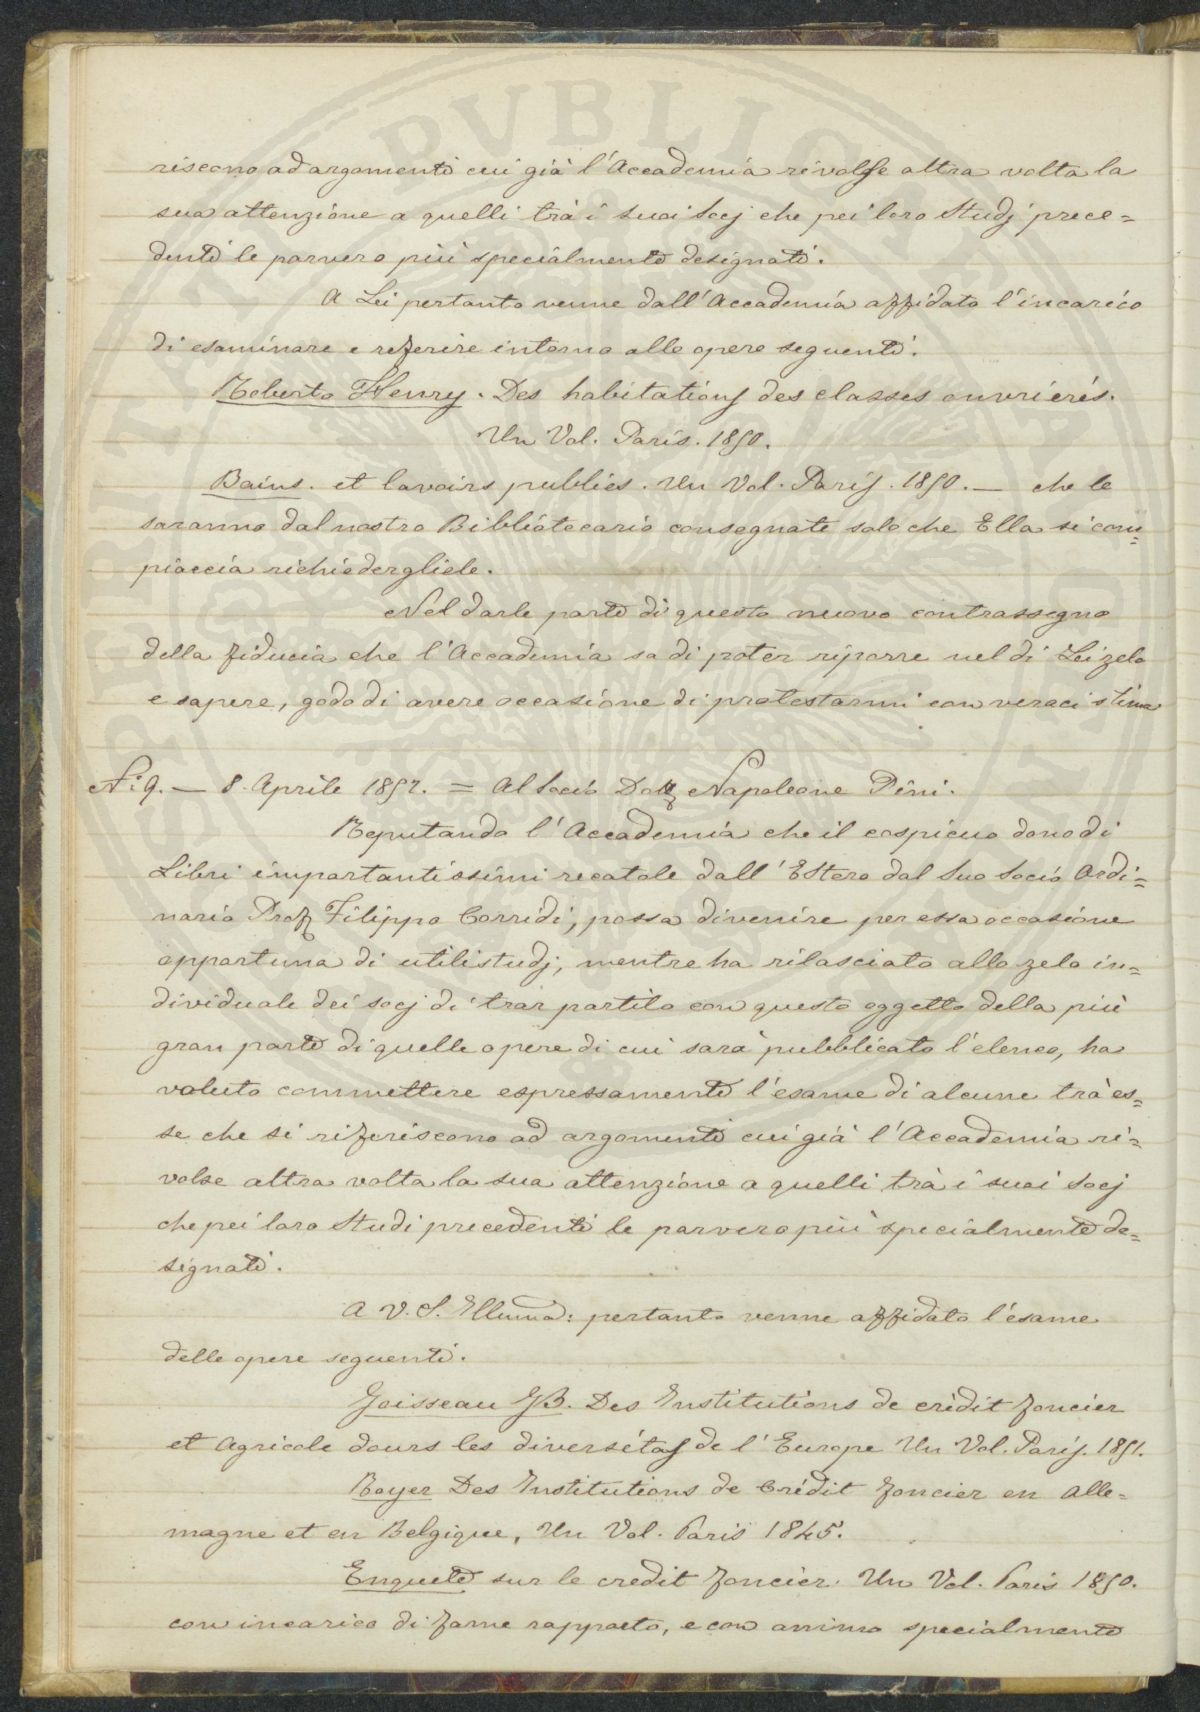 riscono ad argomenti cui già l'Accademia rivolse altra volta la
sua attenzione a quelli trà i suoi Socj che pei loro Studj prece=
denti le parvero più specialmente designati.
A Lei pertanto venne dall'Accademia affidato l'incarico
di esaminare e referire intorno alle opere seguenti.
Roberto Henry. Des habitations des classes ouvriérés.
Un Vol. Paris. 1850.
Bains. et lavoirs publics. Un Vol. Paris. 1850. — che le
saranno dal nostro Bibliotecario consegnate solo che Ella si com=
piaccia richiedergliele.
Nel darle parte di questo nuovo contrassegno
della fiducia che l'Accademia sa di poter riporre nel di Lei zelo
e sapere, godo di avere occasione di protestarmi con verace stima
N: 9. — 8. Aprile 1852. = Al Socio Dott Napoleone Pini.
Reputando l'Accademia che il cospicuo dono di
Libri importantissimi recatole dall'Estero dal Suo Socio Ordi=
nario Prof Filippo Corridi, possa divenire per essa occasione
opportuna di utili studj, mentre ha rilasciato allo zelo in=
dividuale dei socj di trar partito con questo oggetto della più
gran parte di quelle opere di cui sarà pubblicato l'elenco, ha
voluto commettere espressamente l'esame di alcune trà es=
se che si riferiscono ad argomenti cui già l'Accademia ri=
volse altra volta la sua attenzione a quelli trà i suoi Socj
che pei loro Studi precedenti le parvero più specialmente de=
signati.
A V. S. Illuma: pertanto venne affidato l'esame
delle opere seguenti.
Joisseau JB. Des Institutions de crédit foncier
et Agricole dans les divers étas de l'Europe Un Vol. Paris. 1851.
Royer Des Institutions de Crédit foncier en Alle=
magne et en Belgique, Un Vol. Paris 1845.
Enquete sur le credit foncier. Un Vol. Paris 1850.
con incarico di farne rapporto, e con animo specialmente